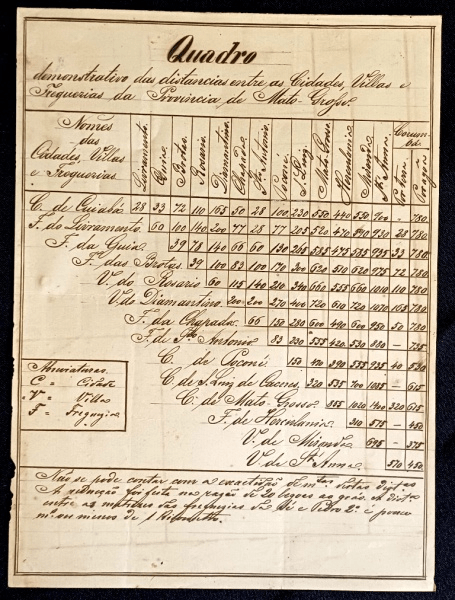 Quadro
demonstrativo das distancias entre as Cidades, Villas e
Freguezias da Provincia de Mato-Grosso.
Nomes
das
Cidades, Villas
e Freguezias.
Livramento.
Guia.
Brotas.
Rosario.
Diamantino.
Chapada.
Sto. Antonio.
Poconé.
S. Luiz.
Mato Grosso.
Herculania.
Miranda.
Sta. Anna.
Corumbá.
C. de Cuiabá 28 33 72 110 165 50 28 100 230 550 440 530 900 - 780.
F. do Livramento. 60 100 140 200 77 28 77 205 520 470 930 28 780.
F. da Guia. 39 78 140 66 60 130 265 585 475 585 935 33 780.
F. das Brotas. 39 100 83 100 170 300 620 510 620 975 72 780.
V. do Rosario 60 115 140 210 340 660 555 660 1010 110 780.
V. do Diamantino. 200 200 270 400 720 610 720 1070 165 780.
F. da Chapada. 66 150 280 600 490 600 950 50 780.
F. de Sto. Antonio 83 230 555 420 530 880 - 735.
C. de Poconé. 150 470 390 555 935 40 530
C. de S. Luiz de Caceres, 320 535 700 1085 - 615
C. de Mato-Grosso 855 1020 1400 320 615
F. de Herculania. 210 575 - 450
V. de Miranda 695 - 375
V. de Sta. Anna 570 450
Abreviaturas.
C = Cidade
V = Villa
F = Freguezia
Não se pode contar com a exactidão de mtas. destas distas.
A reducção foi feita na razão de 20 legoas ao gráo. A dista.
entre as matrizes das freguezias da Sé e Pedro 2º é pouco
mais ou menos de 1 Kilometro.